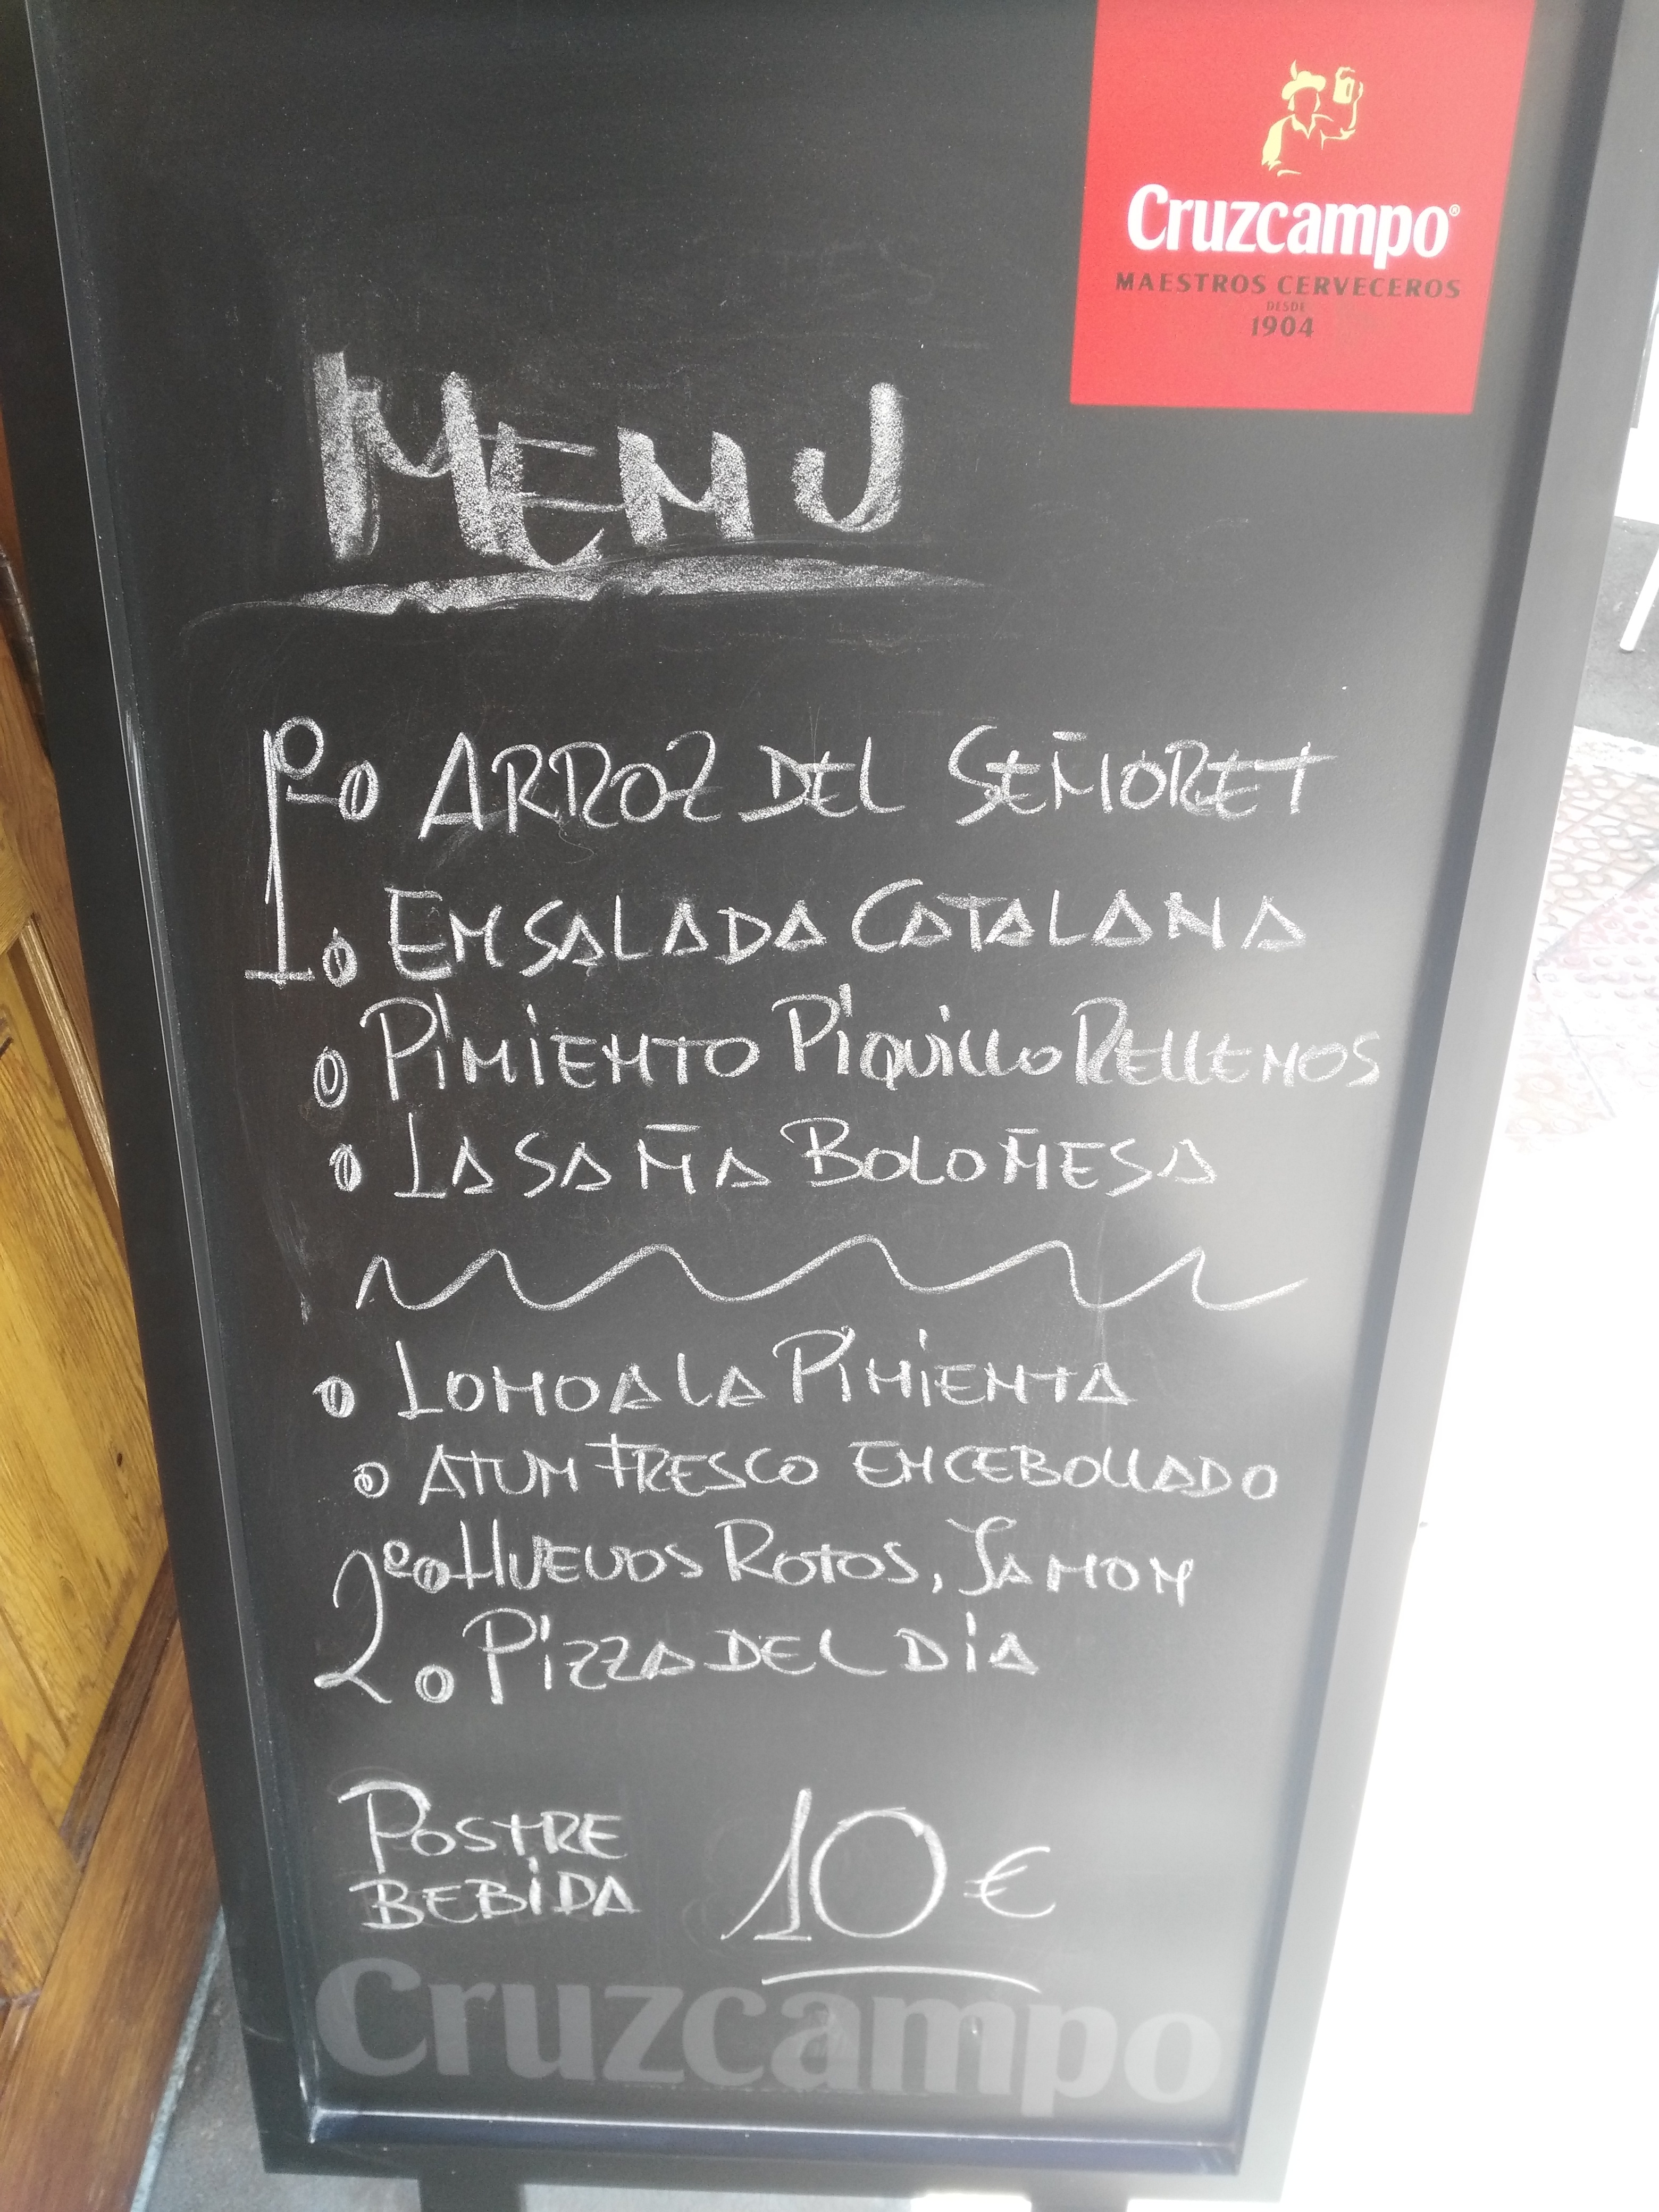 Cruzcampo®
MAESTROS CERVECEROS
DESDE
1904
MENU
1º o ARROZ DEL SEÑORET
o ENSALADA CATALANA
o PIMIENTO PIQUILLO RELLENOS
o LASAÑA BOLOÑESA
o LOMO A LA PIMIENTA
o ATUN FRESCO ENCEBOLLADO
2º o HUEVOS ROTOS, JAMON
o PIZZA DEL DIA
POSTRE
BEBIDA 10€
Cruzcampo